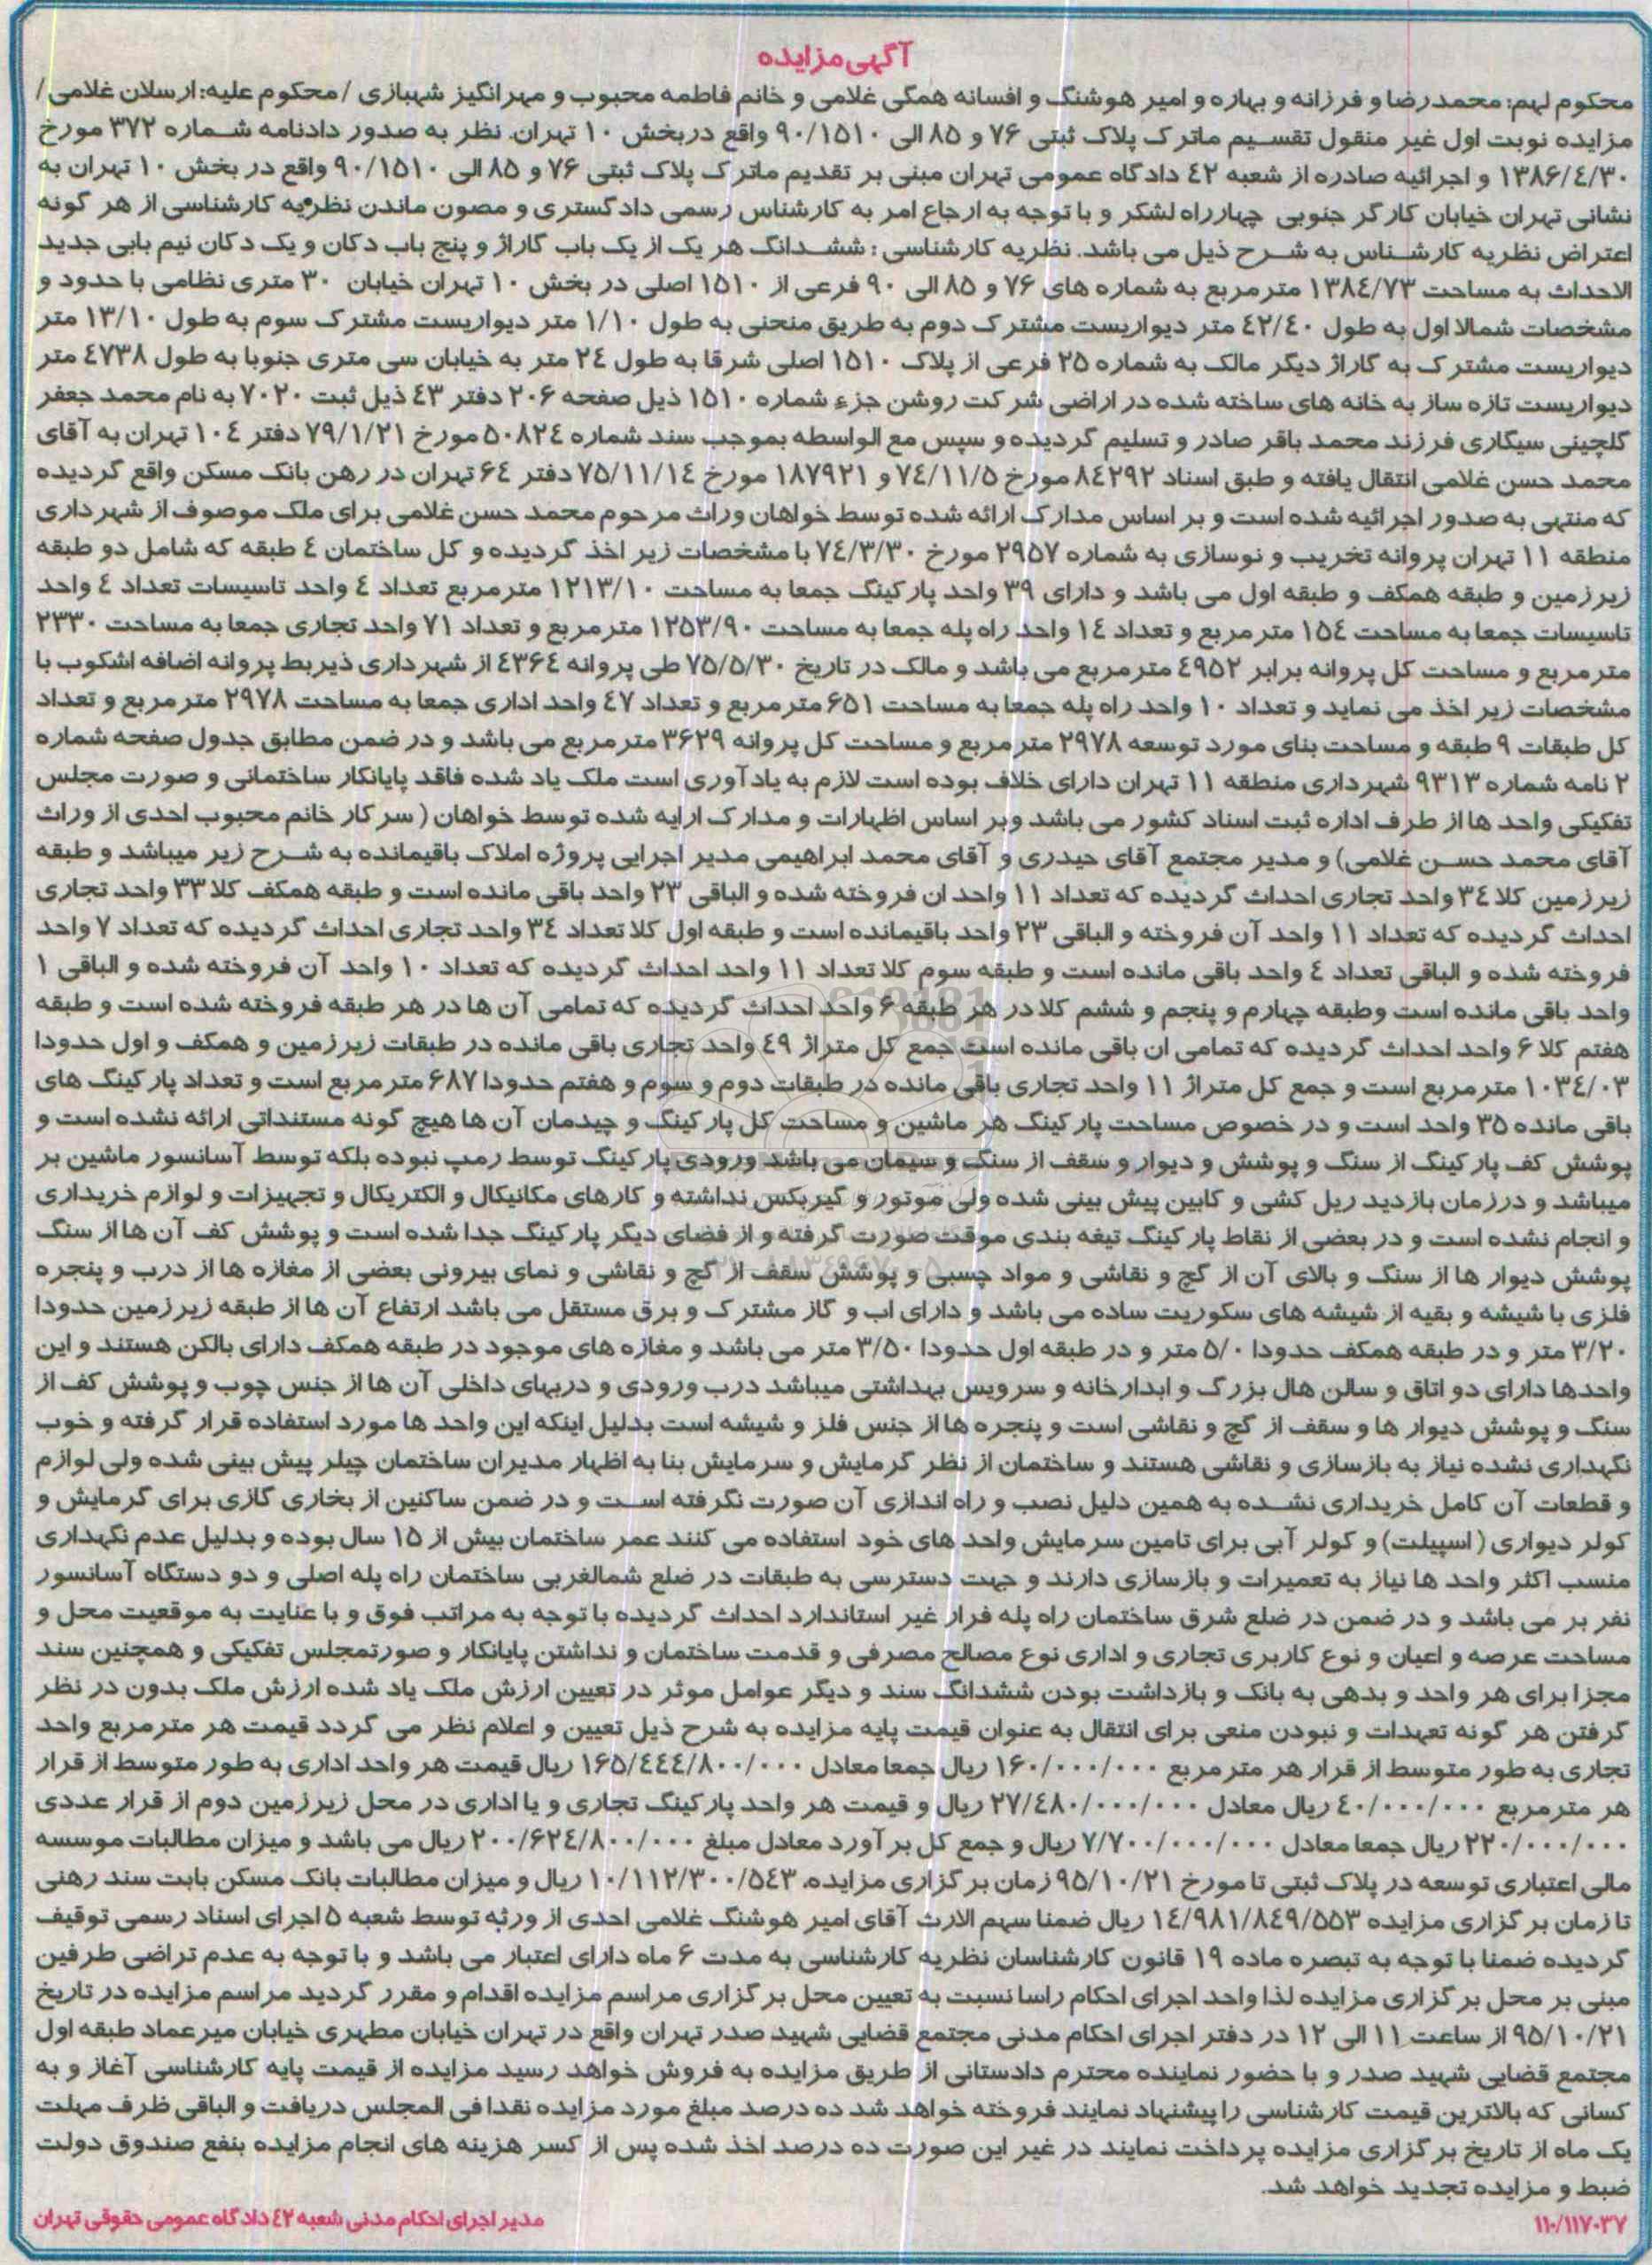 آگهی مزایده
محکوم لهم: محمدرضا و فرزانه و بهاره و امیر هوشنگ و افسانه همگی غلامی و خانم فاطمه محبوب و مهرانگیز شهبازی / محکوم علیه: ارسلان غلامی /
مزایده نوبت اول غیر منقول تقسیم ماترک پلاک ثبتی ۷۶ و ۸۵ الی ۹۰/۱۵۱۰ واقع دربخش ۱۰ تهران. نظر به صدور دادنامه شماره ۳۷۲ مورخ
۱۳۸۶/۴/۳۰ و اجرائیه صادره از شعبه ۴۲ دادگاه عمومی تهران مبنی بر تقدیم ماترک پلاک ثبتی ۷۶ و ۸۵ الی ۹۰/۱۵۱۰ واقع در بخش ۱۰ تهران به
نشانی تهران خیابان کارگر جنوبی چهارراه لشکر و با توجه به ارجاع امر به کارشناس رسمی دادگستری و مصون ماندن نظریه کارشناسی از هر گونه
اعتراض نظریه کارشناس به شرح ذیل می باشد. نظریه کارشناسی: ششدانگ هر یک از یک باب گاراژ و پنج باب دکان و یک دکان نیم بابی جدید
الاحداث به مساحت ۱۳۸۴/۷۳ مترمربع به شماره های ۷۶ و ۸۵ الی ۹۰ فرعی از ۱۵۱۰ اصلی در بخش ۱۰ تهران خیابان ۳۰ متری نظامی با حدود و
مشخصات شمالا اول به طول ۴۲/۴۰ متر دیواریست مشترک دوم به طریق منحنی به طول ۱/۱۰ متر دیواریست مشترک سوم به طول ۱۳/۱۰ متر
دیواریست مشترک به گاراژ دیگر مالک به شماره ۲۵ فرعی از پلاک ۱۵۱۰ اصلی شرقا به طول ۲۴ متر به خیابان سی متری جنوبا به طول ۴۷۳۸ متر
دیواریست تازه ساز به خانه های ساخته شده در اراضی شرکت روشن جزء شماره ۱۵۱۰ ذیل صفحه ۲۰۶ دفتر ۴۳ ذیل ثبت ۷۰۲۰ به نام محمد جعفر
گلچینی سیگاری فرزند محمد باقر صادر و تسلیم گردیده و سپس مع الواسطه بموجب سند شماره ۵۰۸۲۴ مورخ ۷۹/۱/۲۱ دفتر ۱۰۴ تهران به آقای
محمد حسن غلامی انتقال یافته و طبق اسناد ۸۴۲۹۲ مورخ ۷۴/۱۱/۵ و ۱۸۷۹۲۱ مورخ ۷۵/۱۱/۱۴ دفتر ۶۴ تهران در رهن بانک مسکن واقع گردیده
که منتهی به صدور اجرائیه شده است و بر اساس مدارک ارائه شده توسط خواهان وراث مرحوم محمد حسن غلامی برای ملک موصوف از شهرداری
منطقه ۱۱ تهران پروانه تخریب و نوسازی به شماره ۲۹۵۷ مورخ ۷۴/۳/۳۰ با مشخصات زیر اخذ گردیده و کل ساختمان ۴ طبقه که شامل دو طبقه
زیرزمین و طبقه همکف و طبقه اول می باشد و دارای ۳۹ واحد پارکینگ جمعا به مساحت ۱۲۱۳/۱۰ مترمربع تعداد ۴ واحد تاسیسات تعداد ۴ واحد
تاسیسات جمعا به مساحت ۱۵۴ مترمربع و تعداد ۱۴ واحد راه پله جمعا به مساحت ۱۲۵۳/۹۰ مترمربع و تعداد ۷۱ واحد تجاری جمعا به مساحت ۲۳۳۰
مترمربع و مساحت کل پروانه برابر ۴۹۵۲ مترمربع می باشد و مالک در تاریخ ۷۵/۵/۳۰ طی پروانه ۴۳۶۴ از شهرداری ذیربط پروانه اضافه اشکوب با
مشخصات زیر اخذ می نماید و تعداد ۱۰ واحد راه پله جمعا به مساحت ۶۵۱ مترمربع و تعداد ۴۷ واحد اداری جمعا به مساحت ۲۹۷۸ مترمربع و تعداد
کل طبقات ۹ طبقه و مساحت بنای مورد توسعه ۲۹۷۸ مترمربع و مساحت کل پروانه ۳۶۲۹ مترمربع می باشد و در ضمن مطابق جدول صفحه شماره
۲ نامه شماره ۹۳۱۳ شهرداری منطقه ۱۱ تهران دارای خلاف بوده است لازم به یادآوری است ملک یاد شده فاقد پایانکار ساختمانی و صورت مجلس
تفکیکی واحد ها از طرف اداره ثبت اسناد کشور می باشد وبر اساس اظهارات و مدارک ارایه شده توسط خواهان (سرکار خانم محبوب احدی از وراث
آقای محمد حسن غلامی) و مدیر مجتمع آقای حیدری و آقای محمد ابراهیمی مدیر اجرایی پروژه املاک باقیمانده به شرح زیر میباشد و طبقه
زیرزمین کلا ۳۴ واحد تجاری احداث گردیده که تعداد ۱۱ واحد ان فروخته شده و الباقی ۲۳ واحد باقی مانده است و طبقه همکف کلا ۳۳ واحد تجاری
احداث گردیده که تعداد ۱۱ واحد آن فروخته و الباقی ۲۳ واحد باقیمانده است و طبقه اول کلا تعداد ۳۴ واحد تجاری احداث گردیده که تعداد ۷ واحد
فروخته شده و الباقی تعداد ۴ واحد باقی مانده است و طبقه سوم کلا تعداد ۱۱ واحد احداث گردیده که تعداد ۱۰ واحد آن فروخته شده و الباقی ۱
واحد باقی مانده است وطبقه چهارم و پنجم و ششم کلا در هر طبقه ۶ واحد احداث گردیده که تمامی آن ها در هر طبقه فروخته شده است و طبقه
هفتم کلا ۶ واحد احداث گردیده که تمامی ان باقی مانده است جمع کل متراژ ۴۹ واحد تجاری باقی مانده در طبقات زیرزمین و همکف و اول حدودا
۱۰۳۴/۰۳ مترمربع است و جمع کل متراژ ۱۱ واحد تجاری باقی مانده در طبقات دوم و سوم و هفتم حدودا ۶۸۷ مترمربع است و تعداد پارکینگ های
باقی مانده ۳۵ واحد است و در خصوص مساحت پارکینگ هر ماشین و مساحت کل پارکینگ و چیدمان آن ها هیچ گونه مستنداتی ارائه نشده است و
پوشش کف پارکینگ از سنگ و پوشش و دیوار و سقف از سنگ و سیمان می باشد ورودی پارکینگ توسط رمپ نبوده بلکه توسط آسانسور ماشین بر
میباشد و درزمان بازدید ریل کشی و کابین پیش بینی شده ولی موتور و گیربکس نداشته و کارهای مکانیکال و الکتریکال و تجهیزات و لوازم خریداری
و انجام نشده است و در بعضی از نقاط پارکینگ تیغه بندی موقت صورت گرفته و از فضای دیگر پارکینگ جدا شده است و پوشش کف آن ها از سنگ
پوشش دیوار ها از سنگ و بالای آن از گچ و نقاشی و مواد چسبی و پوشش سقف از گچ و نقاشی و نمای بیرونی بعضی از مغازه ها از درب و پنجره
فلزی با شیشه و بقیه از شیشه های سکوریت ساده می باشد و دارای اب و گاز مشترک و برق مستقل می باشد ارتفاع آن ها از طبقه زیرزمین حدودا
۳/۲۰ متر و در طبقه همکف حدودا ۵/۰ متر و در طبقه اول حدودا ۳/۵۰ متر می باشد و مغازه های موجود در طبقه همکف دارای بالکن هستند و این
واحدها دارای دو اتاق و سالن هال بزرگ و ابدارخانه و سرویس بهداشتی میباشد درب ورودی و دربهای داخلی آن ها از جنس چوب و پوشش کف از
سنگ و پوشش دیوار ها و سقف از گچ و نقاشی است و پنجره ها از جنس فلز و شیشه است بدلیل اینکه این واحد ها مورد استفاده قرار گرفته و خوب
نگهداری نشده نیاز به بازسازی و نقاشی هستند و ساختمان از نظر گرمایش و سرمایش بنا به اظهار مدیران ساختمان چیلر پیش بینی شده ولی لوازم
و قطعات آن کامل خریداری نشده به همین دلیل نصب و راه اندازی آن صورت نگرفته است و در ضمن ساکنین از بخاری گازی برای گرمایش و
کولر دیواری (اسپیلت) و کولر آبی برای تامین سرمایش واحد های خود استفاده می کنند عمر ساختمان بیش از ۱۵ سال بوده و بدلیل عدم نگهداری
منسب اکثر واحد ها نیاز به تعمیرات و بازسازی دارند و جهت دسترسی به طبقات در ضلع شمالغربی ساختمان راه پله اصلی و دو دستگاه آسانسور
نفر بر می باشد و در ضمن در ضلع شرق ساختمان راه پله فرار غیر استاندارد احداث گردیده با توجه به مراتب فوق و با عنایت به موقعیت محل و
مساحت عرصه و اعیان و نوع کاربری تجاری و اداری نوع مصالح مصرفی و قدمت ساختمان و نداشتن پایانکار و صورتمجلس تفکیکی و همچنین سند
مجزا برای هر واحد و بدهی به بانک و بازداشت بودن ششدانگ سند و دیگر عوامل موثر در تعیین ارزش ملک یاد شده ارزش ملک بدون در نظر
گرفتن هر گونه تعهدات و نبودن منعی برای انتقال به عنوان قیمت پایه مزایده به شرح ذیل تعیین و اعلام نظر می گردد قیمت هر مترمربع واحد
تجاری به طور متوسط از قرار هر مترمربع ۱۶۰/۰۰۰/۰۰۰ ریال جمعا معادل ۱۶۵/۴۴۴/۸۰۰/۰۰۰ ریال قیمت هر واحد اداری به طور متوسط از قرار
هر مترمربع ۴۰/۰۰۰/۰۰۰ ریال معادل ۲۷/۴۸۰/۰۰۰/۰۰۰ ریال و قیمت هر واحد پارکینگ تجاری و یا اداری در محل زیرزمین دوم از قرار عددی
۲۲۰/۰۰۰/۰۰۰ ریال جمعا معادل ۷/۷۰۰/۰۰۰/۰۰۰ ریال و جمع کل برآورد معادل مبلغ ۲۰۰/۶۲۴/۸۰۰/۰۰۰ ریال می باشد و میزان مطالبات موسسه
مالی اعتباری توسعه در پلاک ثبتی تا مورخ ۹۵/۱۰/۲۱ زمان برگزاری مزایده، ۱۰/۱۱۲/۳۰۰/۵۴۳ ریال و میزان مطالبات بانک مسکن بابت سند رهنی
تا زمان برگزاری مزایده ۱۴/۹۸۱/۸۴۹/۵۵۳ ریال ضمنا سهم الارث آقای امیر هوشنگ غلامی احدی از ورثه توسط شعبه ۵ اجرای اسناد رسمی توقیف
گردیده ضمنا با توجه به تبصره ماده ۱۹ قانون کارشناسان نظریه کارشناسی به مدت ۶ ماه دارای اعتبار می باشد و با توجه به عدم تراضی طرفین
مبنی بر محل برگزاری مزایده لذا واحد اجرای احکام راسا نسبت به تعیین محل برگزاری مراسم مزایده اقدام و مقرر گردید مراسم مزایده در تاریخ
۹۵/۱۰/۲۱ از ساعت ۱۱ الی ۱۲ در دفتر اجرای احکام مدنی مجتمع قضایی شهید صدر تهران واقع در تهران خیابان مطهری خیابان میرعماد طبقه اول
مجتمع قضایی شهید صدر و با حضور نماینده محترم دادستانی از طریق مزایده به فروش خواهد رسید مزایده از قیمت پایه کارشناسی آغاز و به
کسانی که بالاترین قیمت کارشناسی را پیشنهاد نمایند فروخته خواهد شد ده درصد مبلغ مورد مزایده نقدا فی المجلس دریافت و الباقی ظرف مهلت
یک ماه از تاریخ برگزاری مزایده پرداخت نمایند در غیر این صورت ده درصد اخذ شده پس از کسر هزینه های انجام مزایده بنفع صندوق دولت
ضبط و مزایده تجدید خواهد شد.
۱۱۰/۱۱۷۰۳۷
مدیر اجرای احکام مدنی شعبه ۴۲ دادگاه عمومی حقوقی تهران